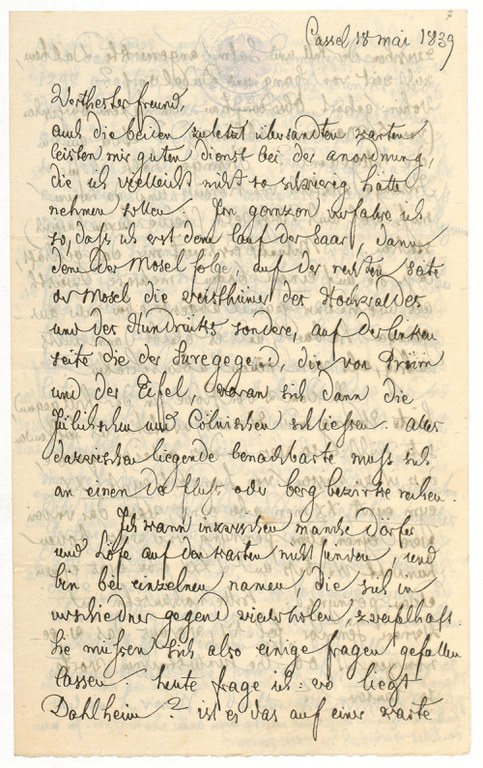 Cassel 18 mai 1839
Werthester freund,
auch die beiden zuletzt übersandten karten
leisten mir guten dienst bei der anordnung,
die ich vielleicht nicht so schwierig hätte
nehmen sollen. Im ganzen verfahre ich
so, daß ich erst dem lauf der Saar, dann
dem der Mosel folge, auf der rechten seite
der Mosel die weisthümer des Hochwaldes
und des Hundrücks sondere, auf der linken
seite die der Suregegend, die von Prüm
und der Eifel, woran sich dann die
Jülichschen und Cölnischen schliessen. alles
dazwischen liegende benachbarte muß sich
an einen der fluß oder berg bezirke reihen.
Ich kann inzwischen manche Dörfer
und Höfe auf den karten nicht finden, und
bin bei einzelnen namen, die sich in
verschiedner gegend wiederholen, zweifelhaft.
Sie müssen sich also einige fragen gefallen
lassen. heute frage ich: wo liegt
Dahlheim? ist es das auf einer karte